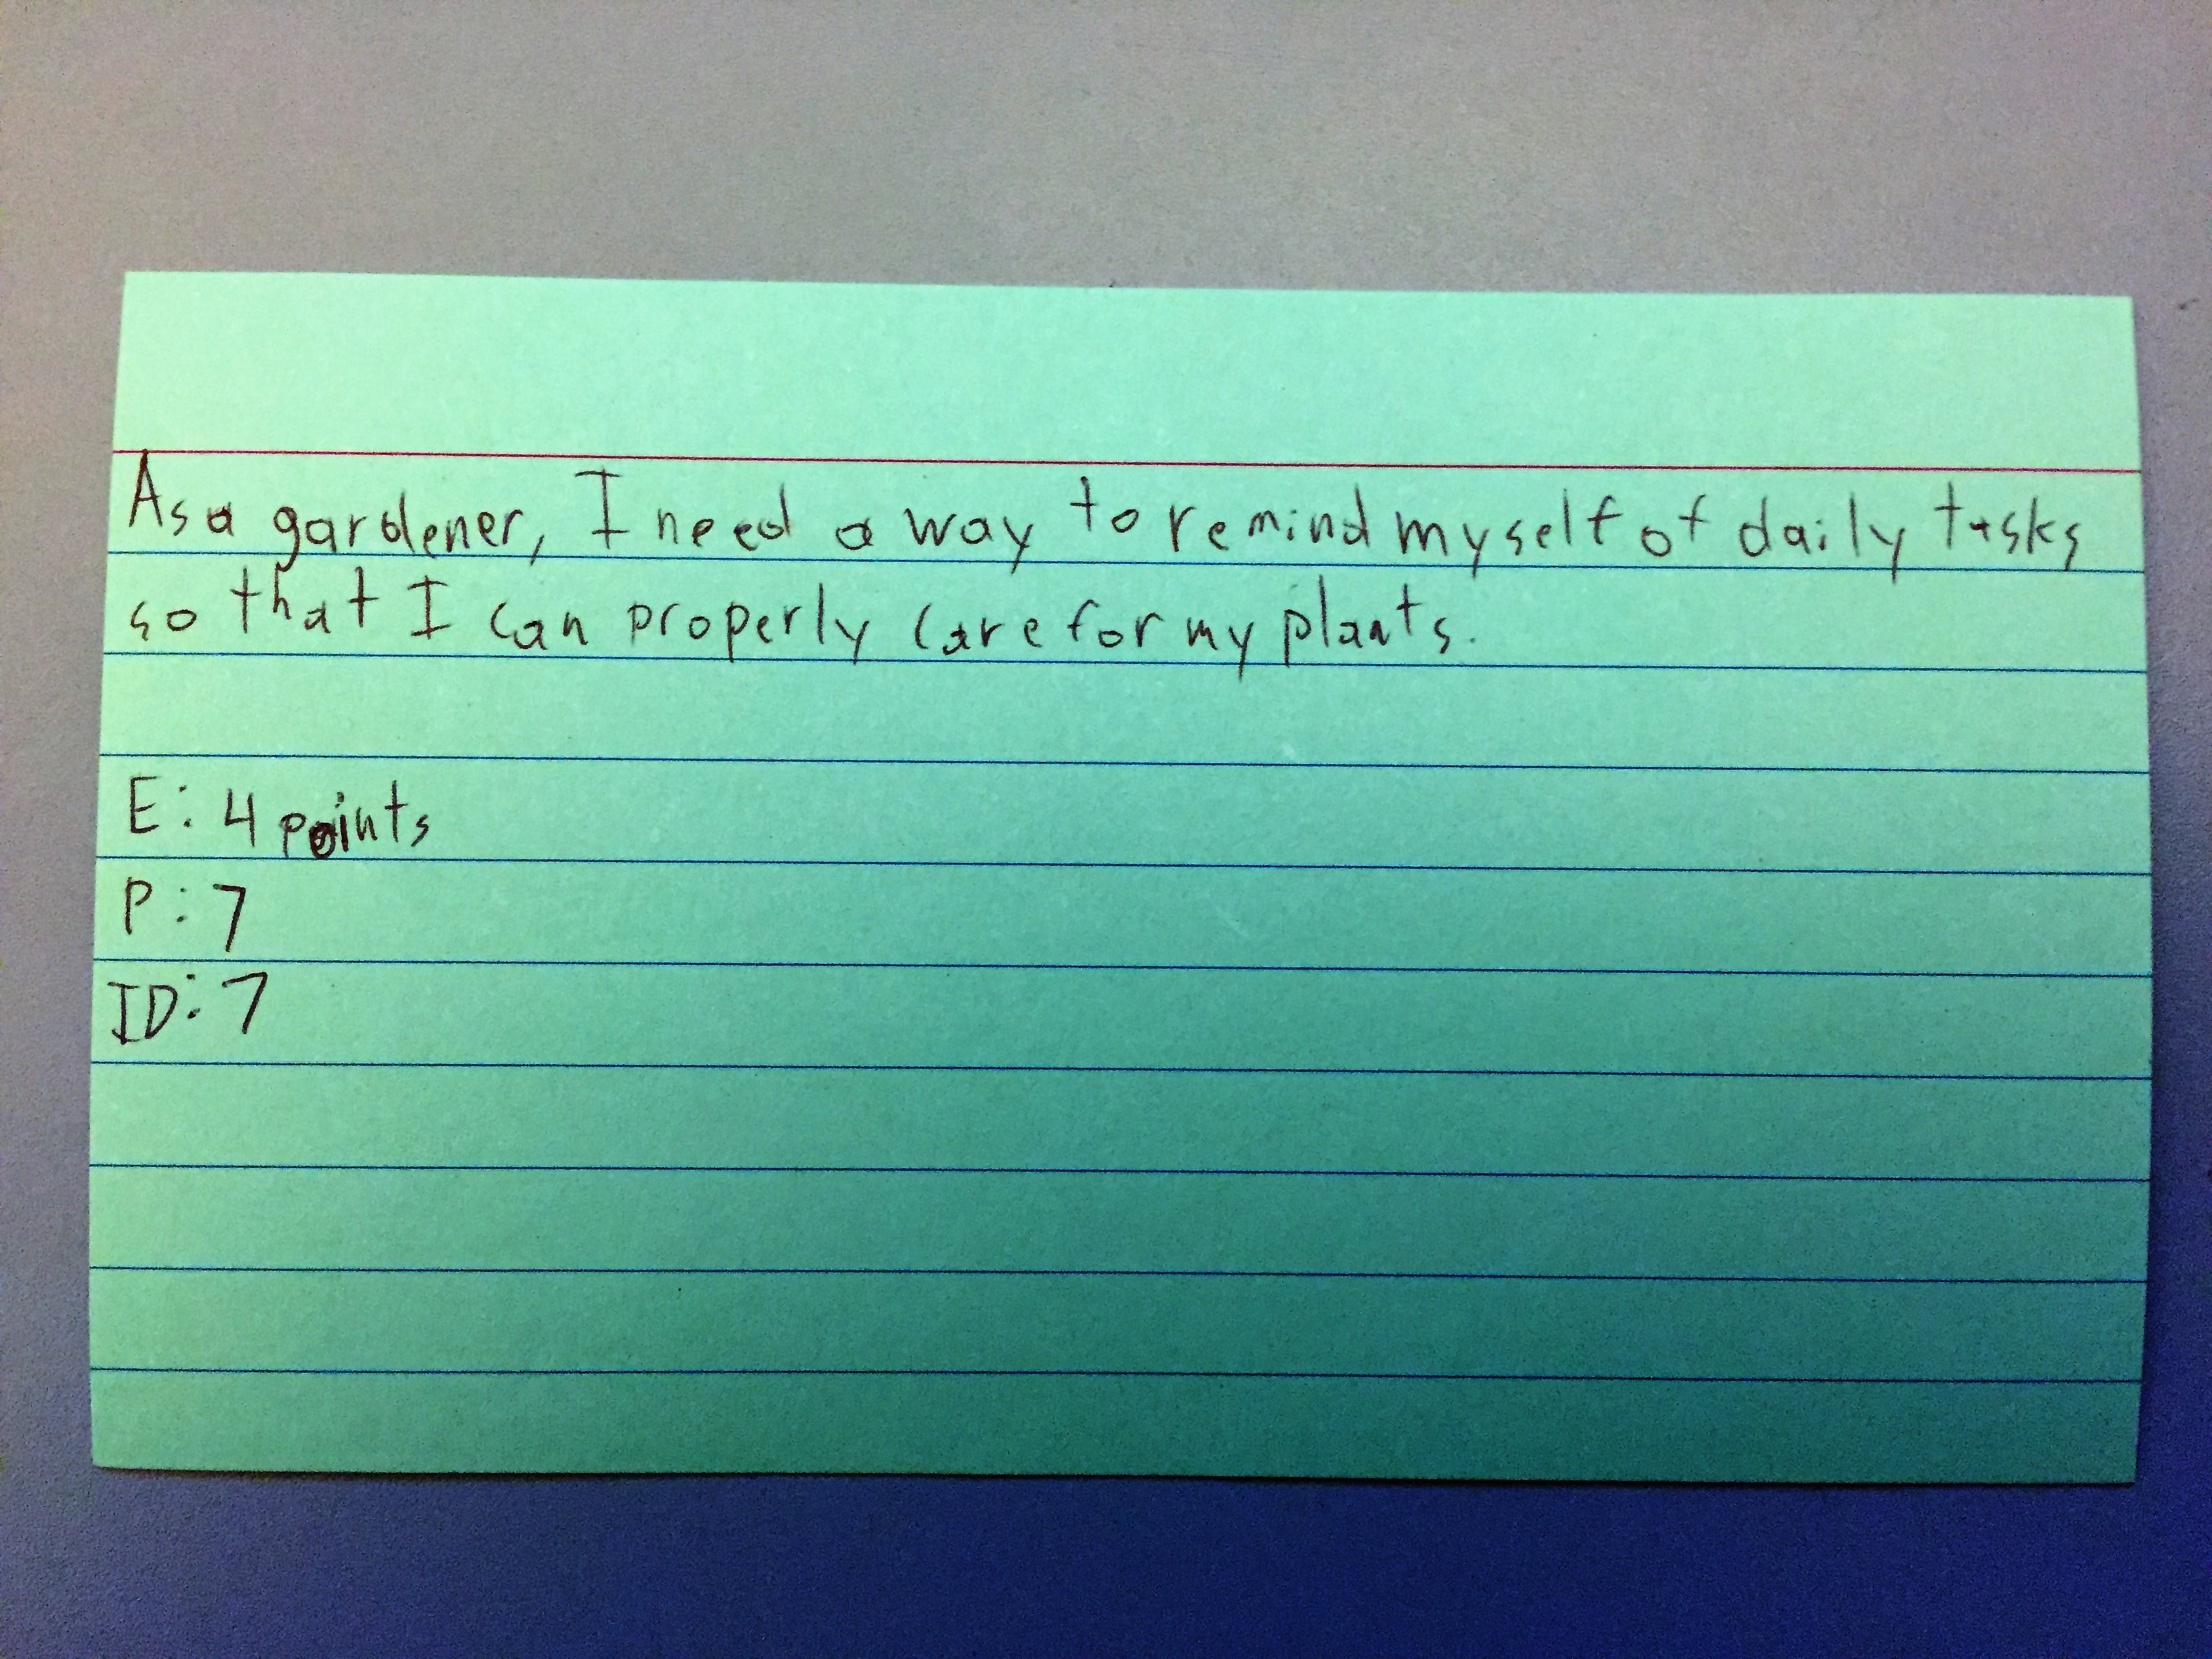 As a gardener, I need a way to remind myself of daily tasks
so that I can properly care for my plants.
E: 4 points
P: 7
ID: 7